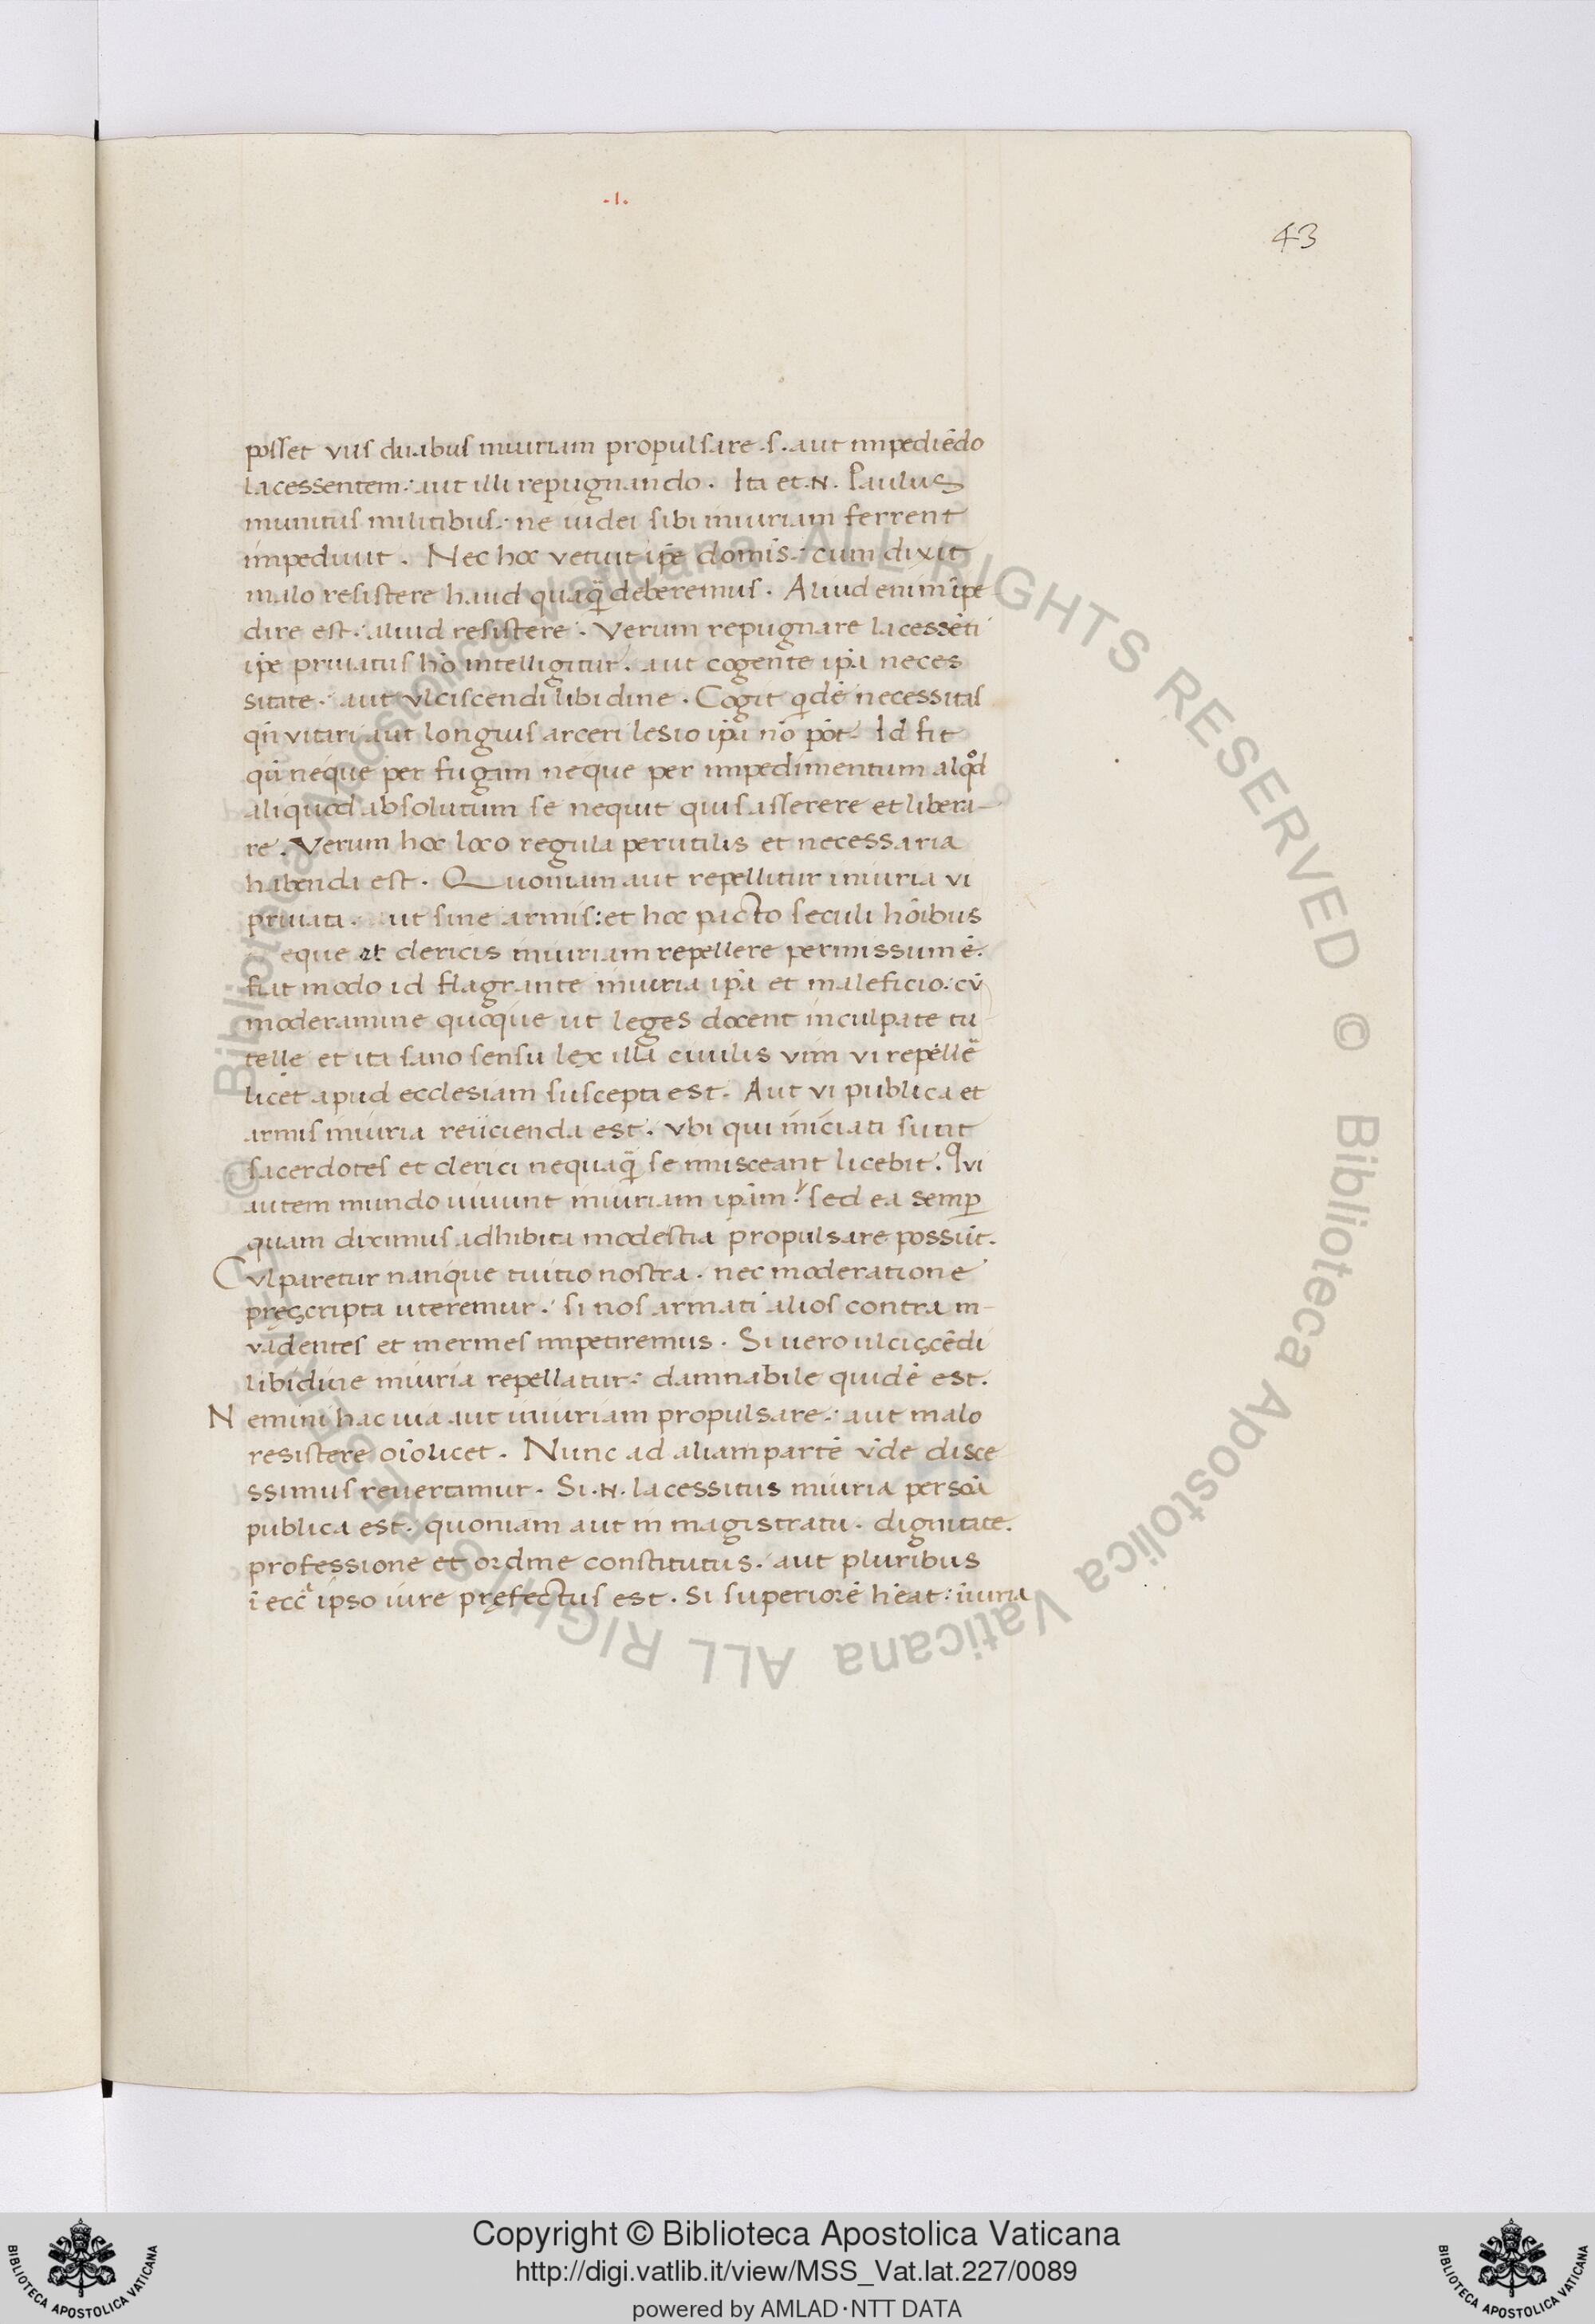 -I.
43
posset viis duabus iniuriam propulsare .s. aut impediēdo
lacessentem: aut illi repugnando. Ita et .N. Paulus
munitus militibus: ne iudei sibi iniuriam ferrent
impediuit. Nec hoc vetuit ip̄e domīs: cum dixit
malo resistere haud quaq̄ deberemus. Aliud enim īpe
dire est: aliud resistere. Verum repugnare lacessēti
ip̄e priuatus hō intelligitur: aut cogente ip̄a neces
sitate: aut vlciscendi libidine. Cogit qidē necessitas
qn̄ vitari aut longius arceri lesio ip̄a nō pōt. Id fit
qn̄ neque per fugam neque per impedimentum alqd
aliquod absolutum se nequit quis asserere et libera-
re. Verum hoc loco regula perutilis et necessaria
habenda est. Quoniam aut repellitur iniuria vi
priuata. aut sine armis: et hoc pacto seculi hōibus
eque at clericis iniuriam repellere permissum ē.
fiat modo id flagrante iniuria ip̄a et maleficio: cū
moderamine quoque ut leges docent inculpate tu
telle et ita sano sensu lex illa ciuilis vim vi repellē
licet apud ecclesiam suscepta est. Aut vi publica et
armis iniuria reiicienda est. vbi qui iniciati sunt
sacerdotes et clerici nequaq̄ se misceant licebit. Qui
autem mundo uiuunt iniuriam ip̄am: sed ea semp
quam diximus adhibita modestia propulsare possūt.
Culparetur nanque tuitio nostra. nec moderatione
pręscripta uteremur: si nos armati alios contra in-
vadentes et inermes impetiremus. Si uero ulciscēdi
libidine iniuria repellatur: damnabile quidē est.
Nemini hac uia aut iniuriam propulsare: aut malo
resistere oīo licet. Nunc ad aliam partē vn̄de disce
ssimus reuertamur. Si .N. lacessitus iniuria persōa
publica est. quoniam aut in magistratu. dignitate.
professione et ordine constitutus. aut pluribus
ī ecc̄ ipso iure pręfectus est. Si superiorē hēat: iīuria
© Biblioteca Apostolica Vaticana ALL RIGHTS RESERVED © Biblioteca Apostolica Vaticana ALL RIGHTS RESERVED
BIBLIOTECA APOSTOLICA VATICANA
Copyright © Biblioteca Apostolica Vaticana
http://digi.vatlib.it/view/MSS_Vat.lat.227/0089
powered by AMLAD·NTT DATA
BIBLIOTECA APOSTOLICA VATICANA